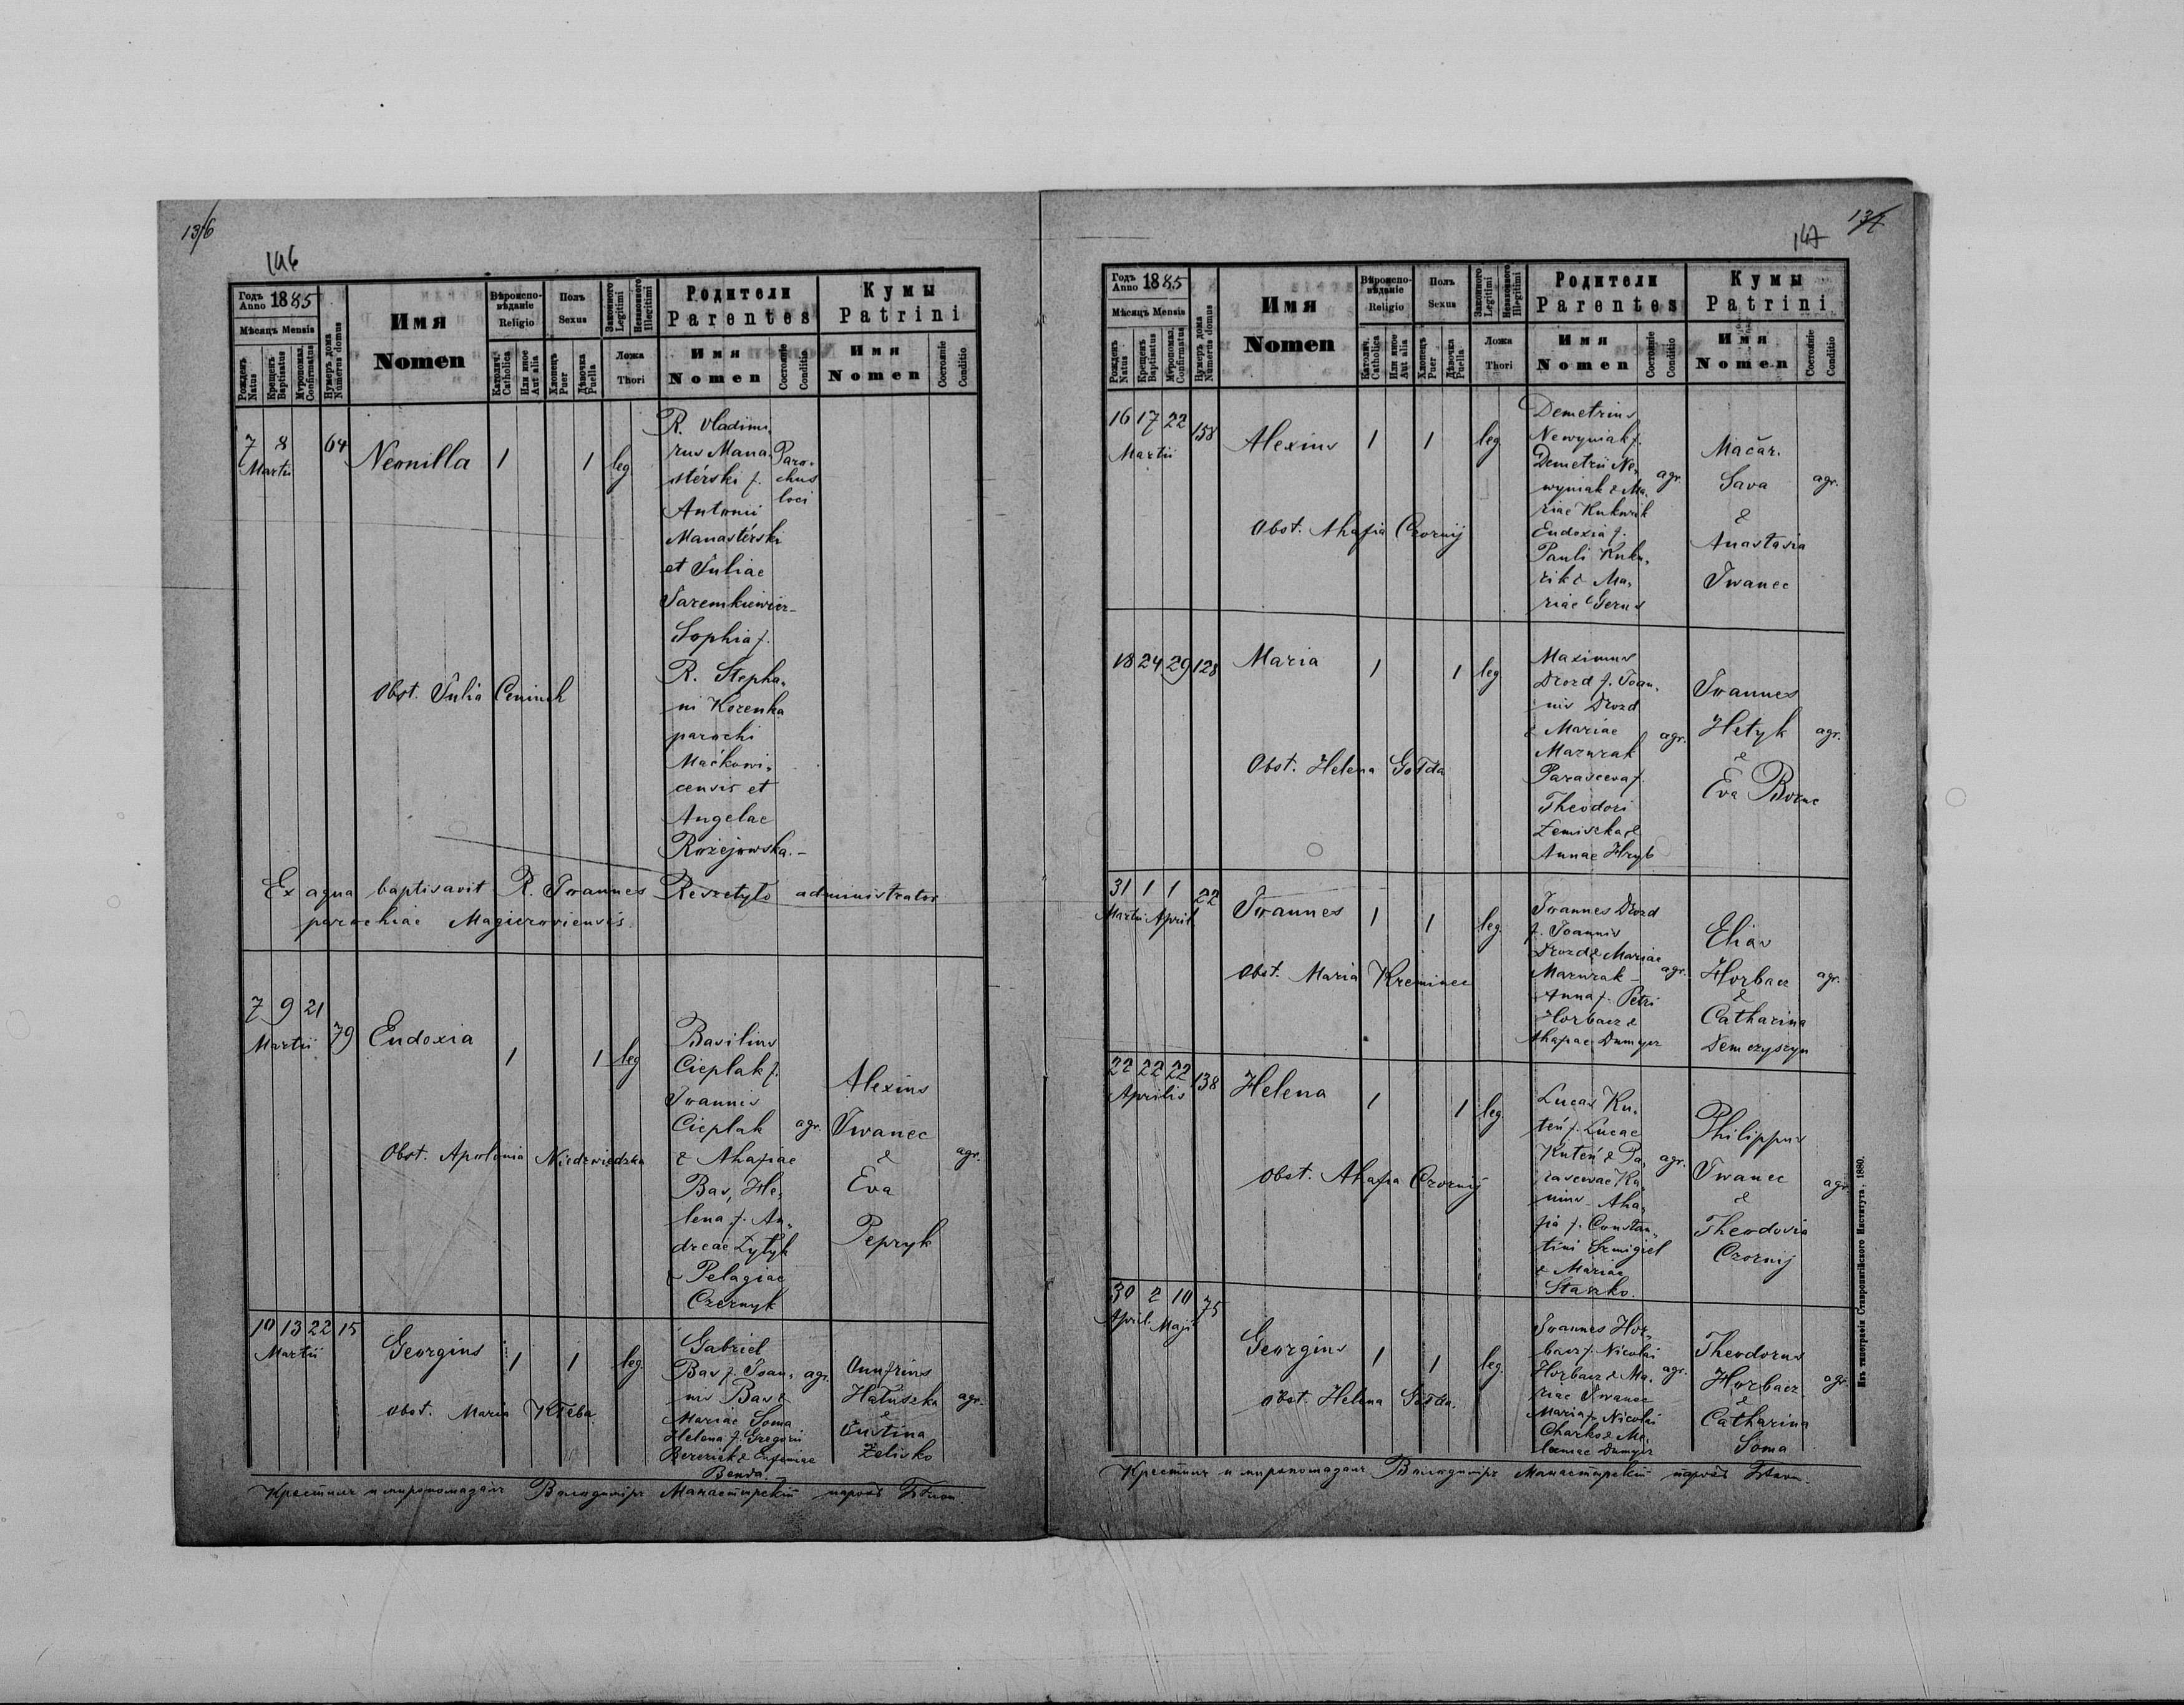 136
146
Годъ
Anno 1885
Мѣсяцъ Mensis
Рожденъ
Natus
Крещенъ
Baptisatus
Мѵропомаз.
Confirmatus
Нумеръ дома
Numerus domus
Имя
Nomen
Вѣроиспо-
вѣданіе
Religio
Католич.
Catholica
Или иное
Aut alia
Полъ
Sexus
Хлопецъ
Puer
Дѣвочка
Puella
Законного
Legitimi
Незаконного
Illegitimi
Ложа
Thori
Родители
Parentes
Имя
Nomen
Состояніе
Conditio
Кумы
Patrini
Имя
Nomen
Состояніе
Conditio
7 8
Martii
64
Neonilla
1
1
leg
R. Vladimi,
rus Mana,
stérski f.
Antonii
Manastérski
et Juliae
Sophia f.
R. Stepha,
ni Kozenka
parochi
Maćkowi,
censis et
Angelae
Rożejowska.-
Paro,
chus
loci
Obst. Julia Ceniuch
Ex aqua baptisavit R. Joannes Reszetyło administrator
parochiae Magieroviensis.
7 9 21
Martii
79
Eudoxia
1
1
leg
Basilius
Cieplak f.
Joannis
Cieplak
& Ahafiae
Bas, He,
lena f. An,
dreae Żytyk
& Pelagiae
Czernyk
agr.
Alexius
Iwanec
&
Eva
Pepryk
agr.
Obst. Apolonia Niedzwiedzka
10 13 22
Martii
15
Georgius
1
1
leg.
Gabriel
Bas f. Joan,
nis Bas &
Mariae Soma
Helena f. Gregorii
Bereziak & Eufemiae
Benda.
agr.
Onufrius
Hałuszka
&
Justina
Želisko
agr.
Obst. Maria Kłeba
Крестилъ и миропомазалъ Володимиръ Манастырскій парохъ
137
147
Годъ
Anno 1885
Мѣсяцъ Mensis
Рожденъ
Natus
Крещенъ
Baptisatus
Мѵропомаз.
Confirmatus
Нумеръ дома
Numerus domus
Имя
Nomen
Вѣроиспо-
вѣданіе
Religio
Католич.
Catholica
Или иное
Aut alia
Полъ
Sexus
Хлопецъ
Puer
Дѣвочка
Puella
Законного
Legitimi
Незаконного
Illegitimi
Ложа
Thori
Родители
Parentes
Имя
Nomen
Состояніе
Conditio
Кумы
Patrini
Имя
Nomen
Состояніе
Conditio
16 17 22
Martii
158
Alexius
1
1
leg
Demetrius
Newyniak f.
Demetrii Ne,
wyniak & Ma,
riae Kukurik
Eudoxia f.
Pauli Kuku,
rik & Ma,
riae Gerus
agr
Mačar.
Sava
&
Anastasia
Iwanec
agr.
Obst. Ahafia Czornij
18 24 29
128
Maria
1
1
leg
Maximus
Drozd f. Joan,
nis Drozd
& Mariae
Mazurak
Parasceva f.
Theodori
Ziemiszka &
Annae Hryb
agr.
Joannes
Hetyk
&
Eva Borne
agr.
Obst. Helena Gołda
31 1 1
Martii April.
22
Joannes
1
1
leg.
Joannes Drozd
f. Joannis
Drozd & Mariae
Mazurak
Anna f. Petri
Horbacz &
Ahafiae Dumycz
agr.
Elias
Horbacz
&
Catharina
Demczyszyn
agr.
Obst. Maria Kreminec
22 22 22
Aprilis
138
Helena
1
1
leg
Lucas Ku,
teń f. Lucae
Kuteń & Pa,
rascevae Ka,
nius Aha,
fia f. Constan,
tini Szmigiel
& Mariae
Staszko.
agr.
Philippus
Iwanec
&
Theodosia
Czornij
agr.
Obst. Ahafia Czornij
30 2 10
April. Maji
75
Georgius
1
1
leg.
Joannes Hor,
bacz f. Nicolai
Horbacz & Ma,
riae Iwanec
Maria f. Nicolai
Charko & Me,
laniae Dumycz
agr.
Theodorus
Horbacz
&
Catharina
Soma
agr.
Obst. Helena Gołda.
Крестилъ и миропомазалъ Володимиръ Манастырскій парохъ
Изъ типографіи Ставропигійского Института, 1880.